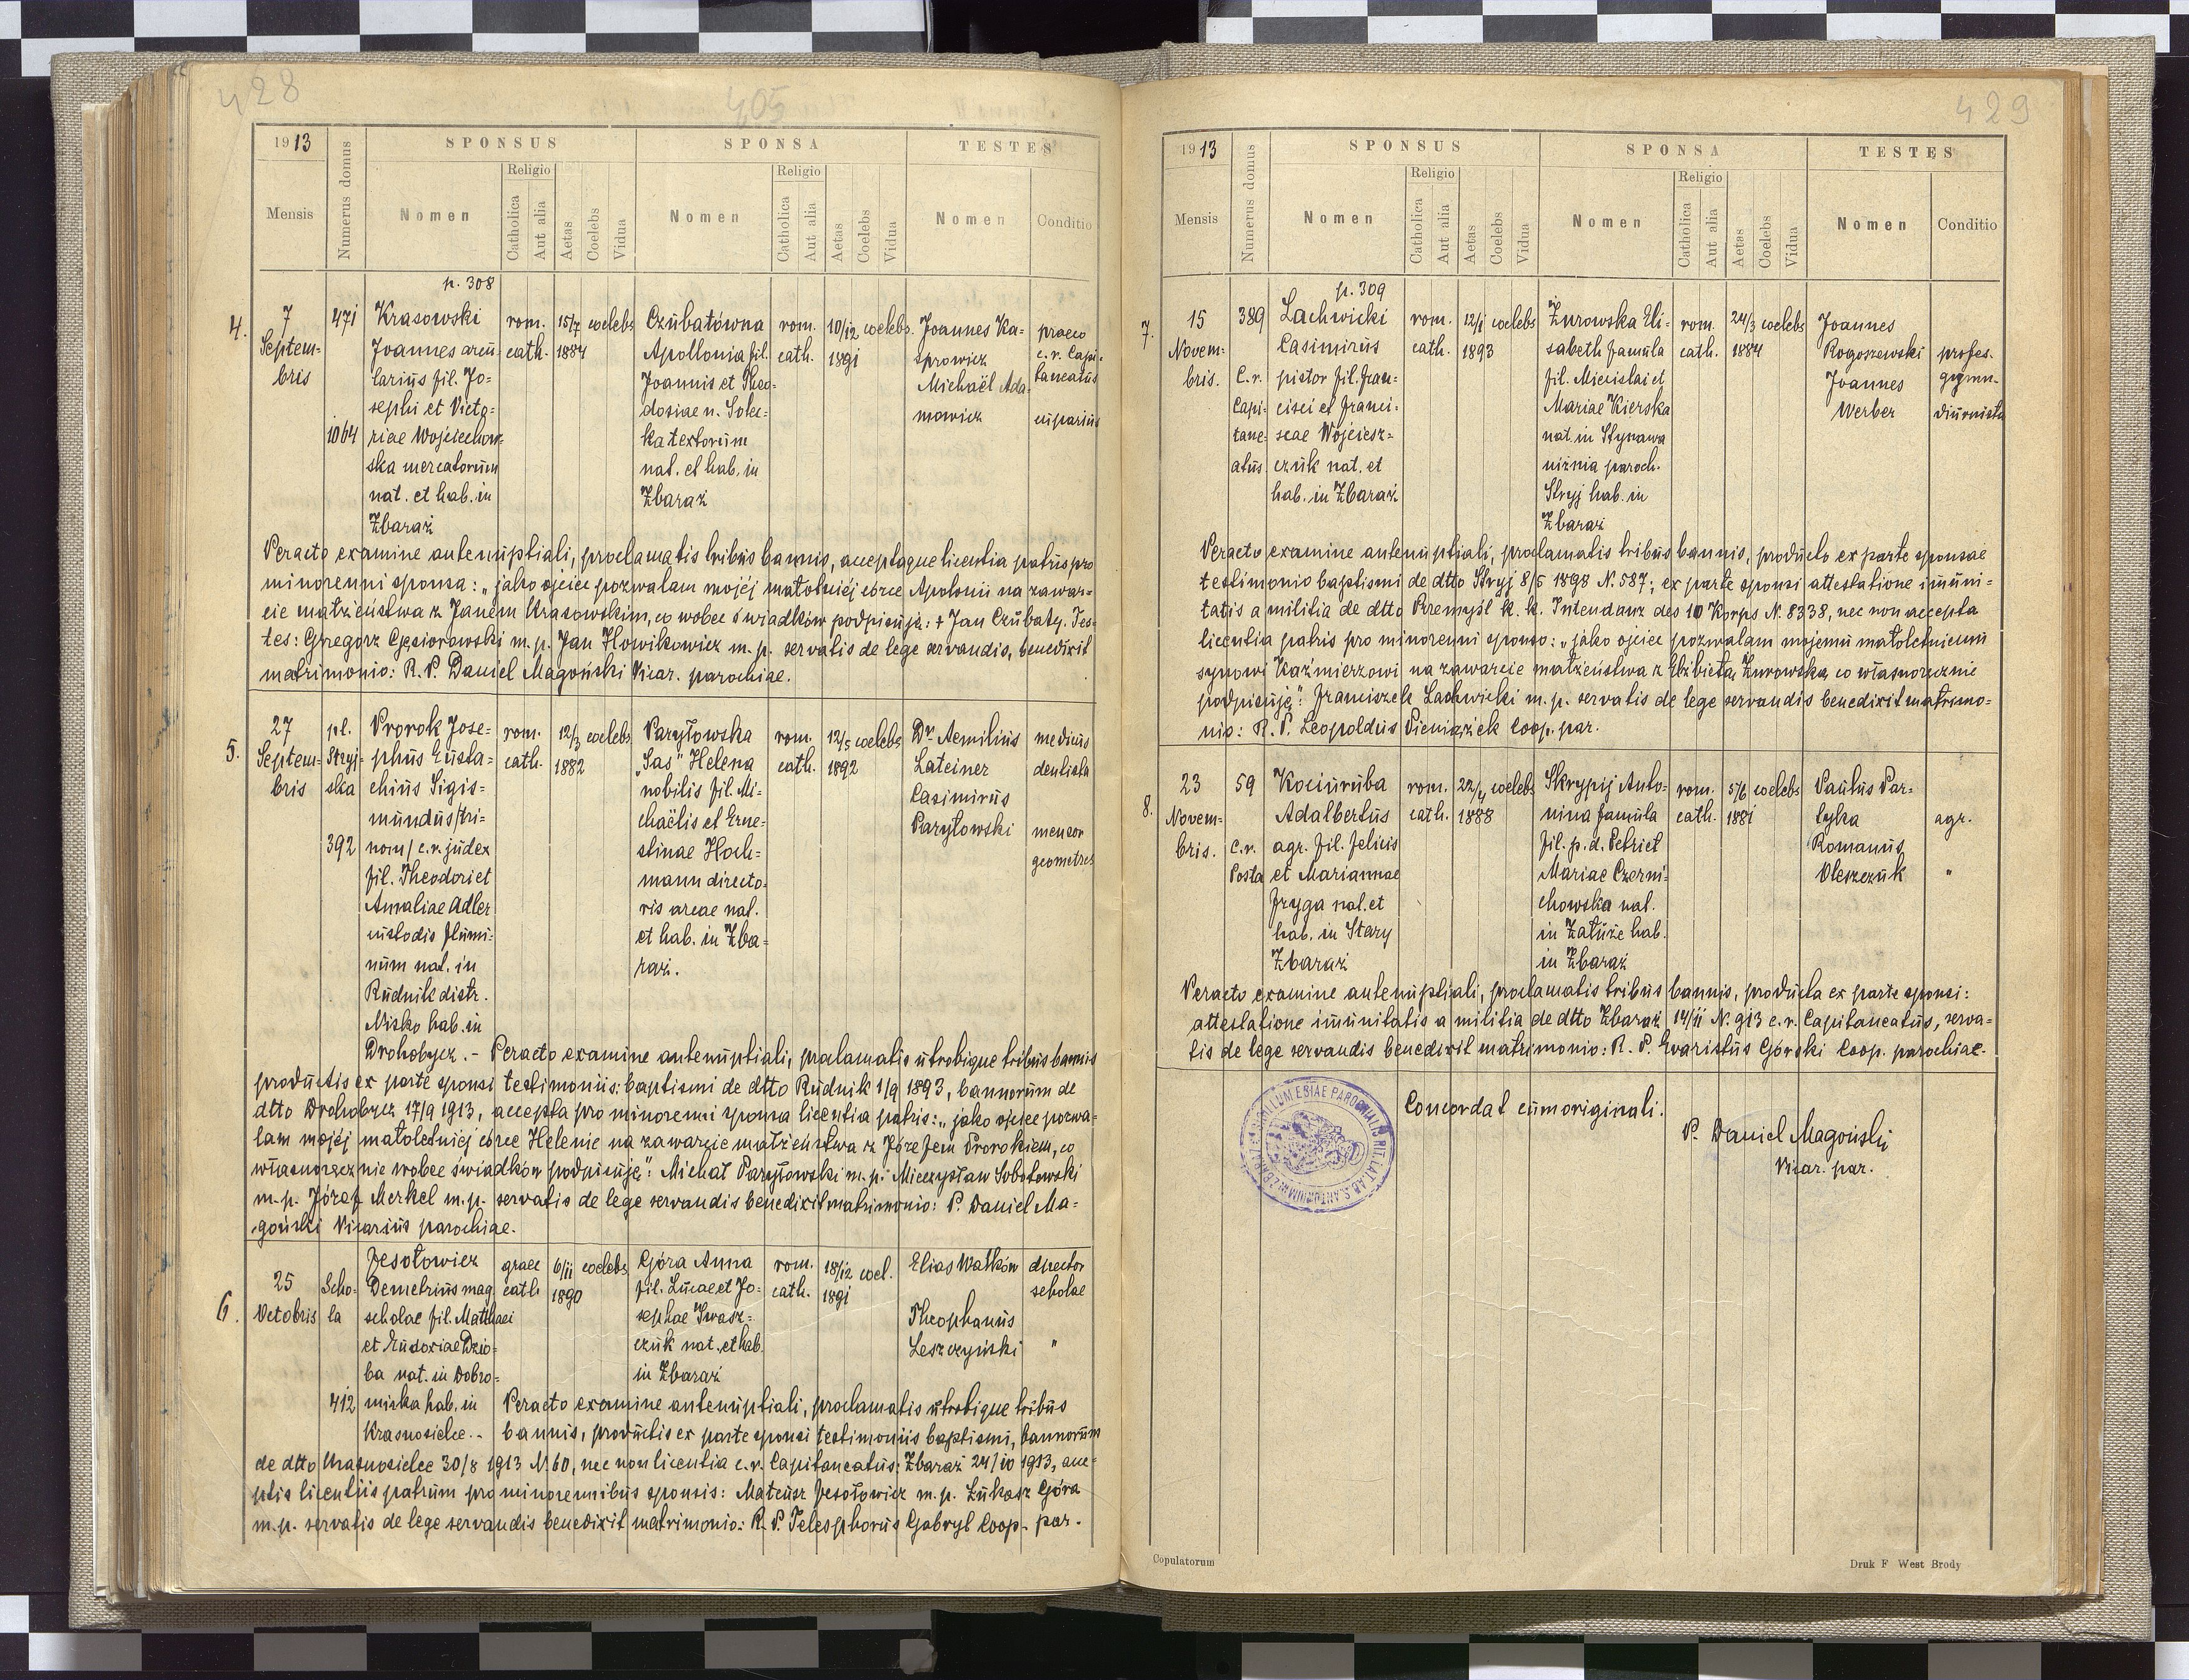 428
405
1913
Mensis
Numerus domus
SPONSUS
Nomen
Religio
Catholica
Aut alia
Aetas
Coelebs
Vidua
SPONSA
Nomen
Religio
Catholica
Aut alia
Aetas
Coelebs
Vidua
TESTES
Nomen
Conditio
4.
7
Septem-
bris
471
1064
p. 308
Krasowski
Joannes arcu-
larius fil. Jo-
sephi et Victo-
riae Wojciechow-
ska mercatorum
nat. et hab. in
Zbaraż
rom.
cath.
15/7
1884
coelebs
Czubatówna
Apollonia fil.
Joannis et Theo-
dosiae n. Solec-
ka textorum
nat. et hab. in
Zbaraż
rom.
cath.
10/12
1891
coelebs.
Joannes Ka-
sprowicz
Michaël Ada-
mowicz
praeco
c. r. Capi-
taneatus
cuparius
Peracto examine antenuptiali, proclamatis tribus bannis, acceptaque licentia patris pro
minorenni sponsa: „jako ojciec pozwalam mojéj małoletniéj córce Apolonii na zawar-
cie małżeństwa z Janem Krasowskim, co wobec świadków podpisuję: + Jan Czubaty. Tes-
tes: Gregorz Gęsiorowski m. p. Jan Howikowicz m. p. servatis de lege servandis, benedixit
matrimonio: R. P. Daniel Magoński Vicar. parochiae.
5.
27
Septem-
bris
pl.
Stryj-
ska
392
Prorok Jose-
phus Eusta-
chius Sigis-
mundus /tri-
nom/ c. r. judex
fil. Theodori et
Amaliae Adler
custodis flumi-
num nat. in
Rudnik distr.
Nisko hab. in
Drohobycz. - Peracto examine antenuptiali, proclamatis utrobique tribus bannis
rom.
cath.
12/3
1882
coelebs
Paryłowska
„Sas" Helena
nobilis fil. Mi-
chaëlis et Erne-
stinae Hoch-
mann directo-
ris arcae nat.
et hab. in Zba-
raż.
rom.
cath.
12/5
1892
coelebs
Dr. Aemilius
Lateiner
Casimirus
Paryłowski
medicus
dentista
mensor
geometres
productis ex parte sponsi testimoniis: baptismi de dtto Rudnik 1/9 1893, bannorum de
dtto Drohobycz 17/9 1913, accepta pro minorenni sponsa licentia patris: „jako ojciec pozwa-
lam mojéj małoletniéj córce Helenie na zawarcie małżeństwa z Józefem Prorokiem, co
własnoręcznie wobec świadków podpisuję": Michał Paryłowski m. p. Mieczysław Sobotowski
m. p. Józef Merkel m. p. servatis de lege servandis benedixit matrimonio: P. Daniel Ma-
goński Vicarius parochiae.
6.
25
Octobris
Scho-
la
412
Jesołowicz
Demetrius mag.
scholae fil. Matthaei
et Eudoxiae Dzio-
ba nat. in Dobro-
mirka hab. in
Krasnosielce. -
graec
cath
6/11
1890
coelebs
Góra Anna
fil. Lucae et Jo-
sephae Iwasz-
czuk nat. et hab.
in Zbaraż
rom.
cath.
18/12
1891
coel.
Elias Wałków
Theophanus
Leszczyński
director
scholae
"
Peracto examine antenuptiali, proclamatis utrobique tribus
bannis, productis ex parte sponsi testimoniis baptismi, bannorum
de dtto Krasnosielce 30/8 1913 N. 60, nec non licentia c. r. Capitaneatus: Zbaraż 24/10 1913, acce-
ptis licentiis patrum pro minorennibus sponsis: Mateusz Jesołowicz m. p. Łukasz Góra
m. p. servatis de lege servandis benedixit matrimonio: R. P. Telesphorus Gabryl Coop. par.
429
1913
Mensis
Numerus domus
SPONSUS
Nomen
Religio
Catholica
Aut alia
Aetas
Coelebs
Vidua
SPONSA
Nomen
Religio
Catholica
Aut alia
Aetas
Coelebs
Vidua
TESTES
Nomen
Conditio
7.
15
Novem-
bris.
389
C. r.
Capi-
tane-
atus
p. 309
Lachwicki
Casimirus
pistor fil. Fran-
cisci et Franci-
scae Wojciesz-
czuk nat. et
hab. in Zbaraż
rom.
cath.
12/1
1893
coelebs
Żurowska Eli-
sabeth famula
fil. Miecislai et
Mariae Kierska
nat. in Stynawa
niżnia paroch.
Stryj hab. in
Zbaraż
rom.
cath.
24/3
1884
coelebs
Joannes
Rogoszewski
Joannes
Werber
profes.
gymn.
diurnista
Peracto examine antenuptiali, proclamatis tribus bannis, producto ex parte sponsae
testimonio baptismi de dtto Stryj 8/5 1898 N. 587; ex parte sponsi attestatione imuni-
tatis a militia de dtto Przemyśl k. k. Intendanz des 10 Korps N. 8338, nec non accepta
licentia patris pro minorenni sponso: „jako ojciec pozwalam mojemu małoletniemu
synowi Kaźmierzowi na zawarcie małżeństwa z Elżbietą Żurowską co własnoręcznie
podpisuję": Franciszek Lachwicki m. p. servatis de lege servandis benedixit matrimo-
nio: R. P. Leopoldus Pieniążek Coop. par.
8.
23
Novem-
bris.
59
C. r.
Posta
Kociuruba
Adalbertus
agr. fil. Felicis
et Mariannae
Fryga nat. et
hab. in Stary
Zbaraż
rom.
cath.
22/4
1888
coelebs
Skrypij Anto-
nina famula
fil. p. d. Petri et
Mariae Czerni-
chowska nat.
in Załuże hab.
in Zbaraż
rom.
cath.
5/6
1881
coelebs
Paulus Par-
tyka
Romanus
Oleszczuk
agr.
"
Peracto examine antenuptiali, proclamatis tribus bannis, producta ex parte sponsi:
attestatione imunitatis a militia de dtto Zbaraż 14/11 N. 913 c. r. Capitaneatus, serva-
tis de lege servandis benedixit matrimonio: R. P. Evaristus Górski Coop. parochiae.
Concordat cum originali.
P. Daniel Magoński
Vicar. par.
Copulatorum
Druk F West Brody